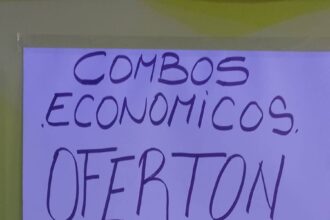 COMBOS
.ECONOMICOS.
OFERTON